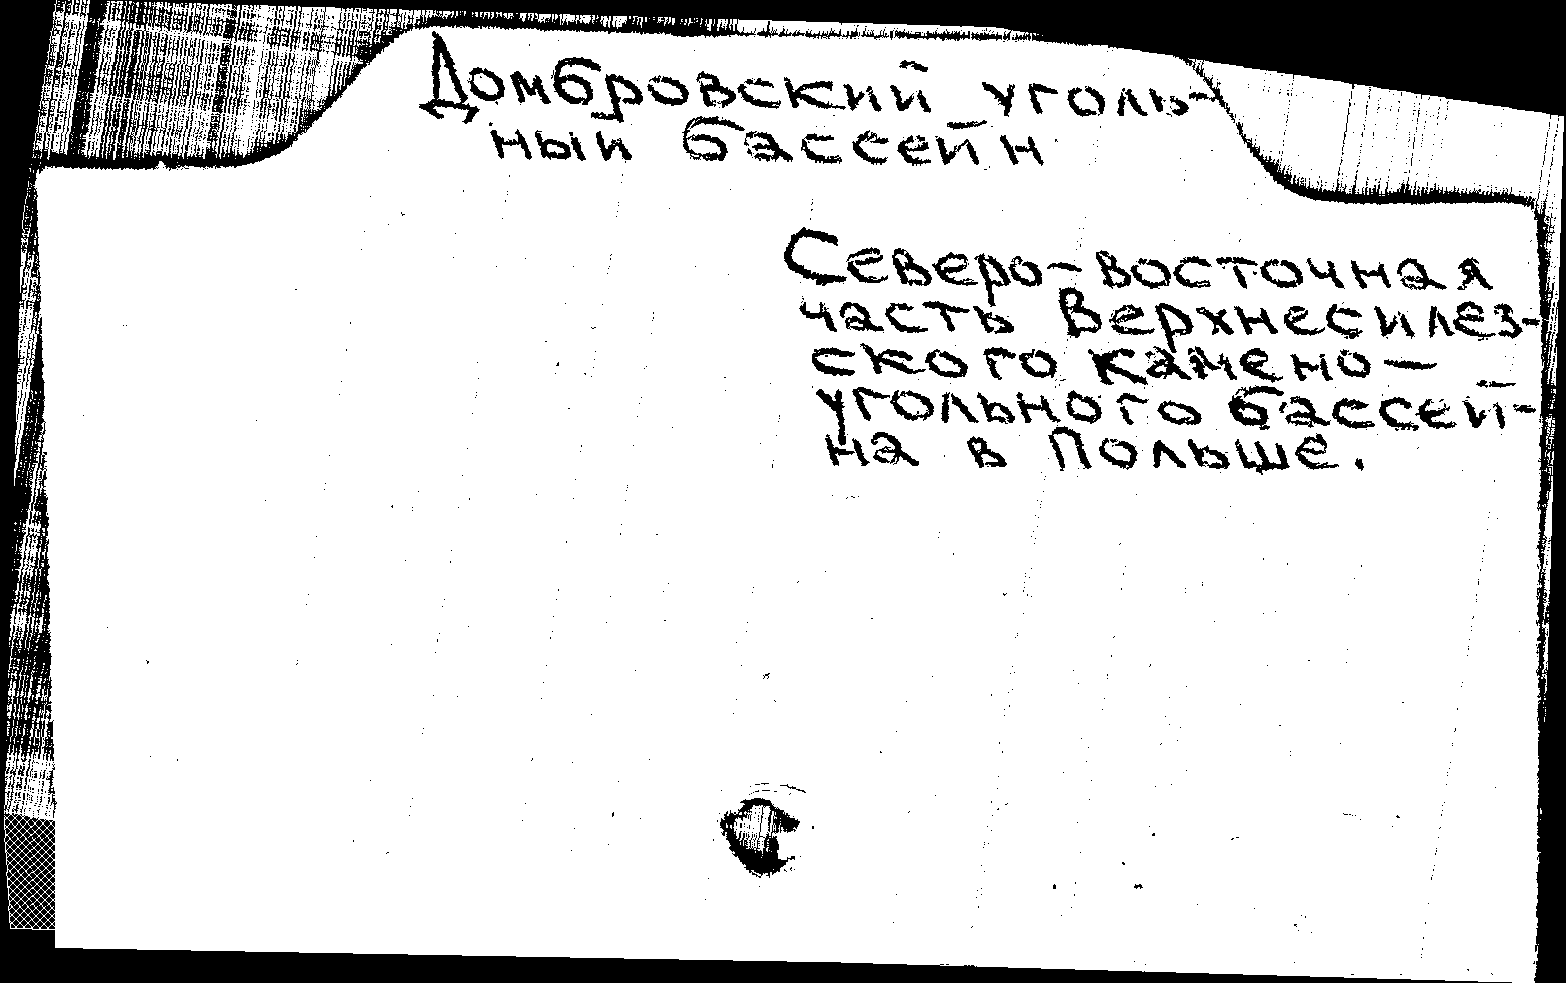 Домбровский уголь-
ный бассейн
Северо-восточная
часть Верхнесилез-
ского камено-
угольного бассей-
на в Польше.